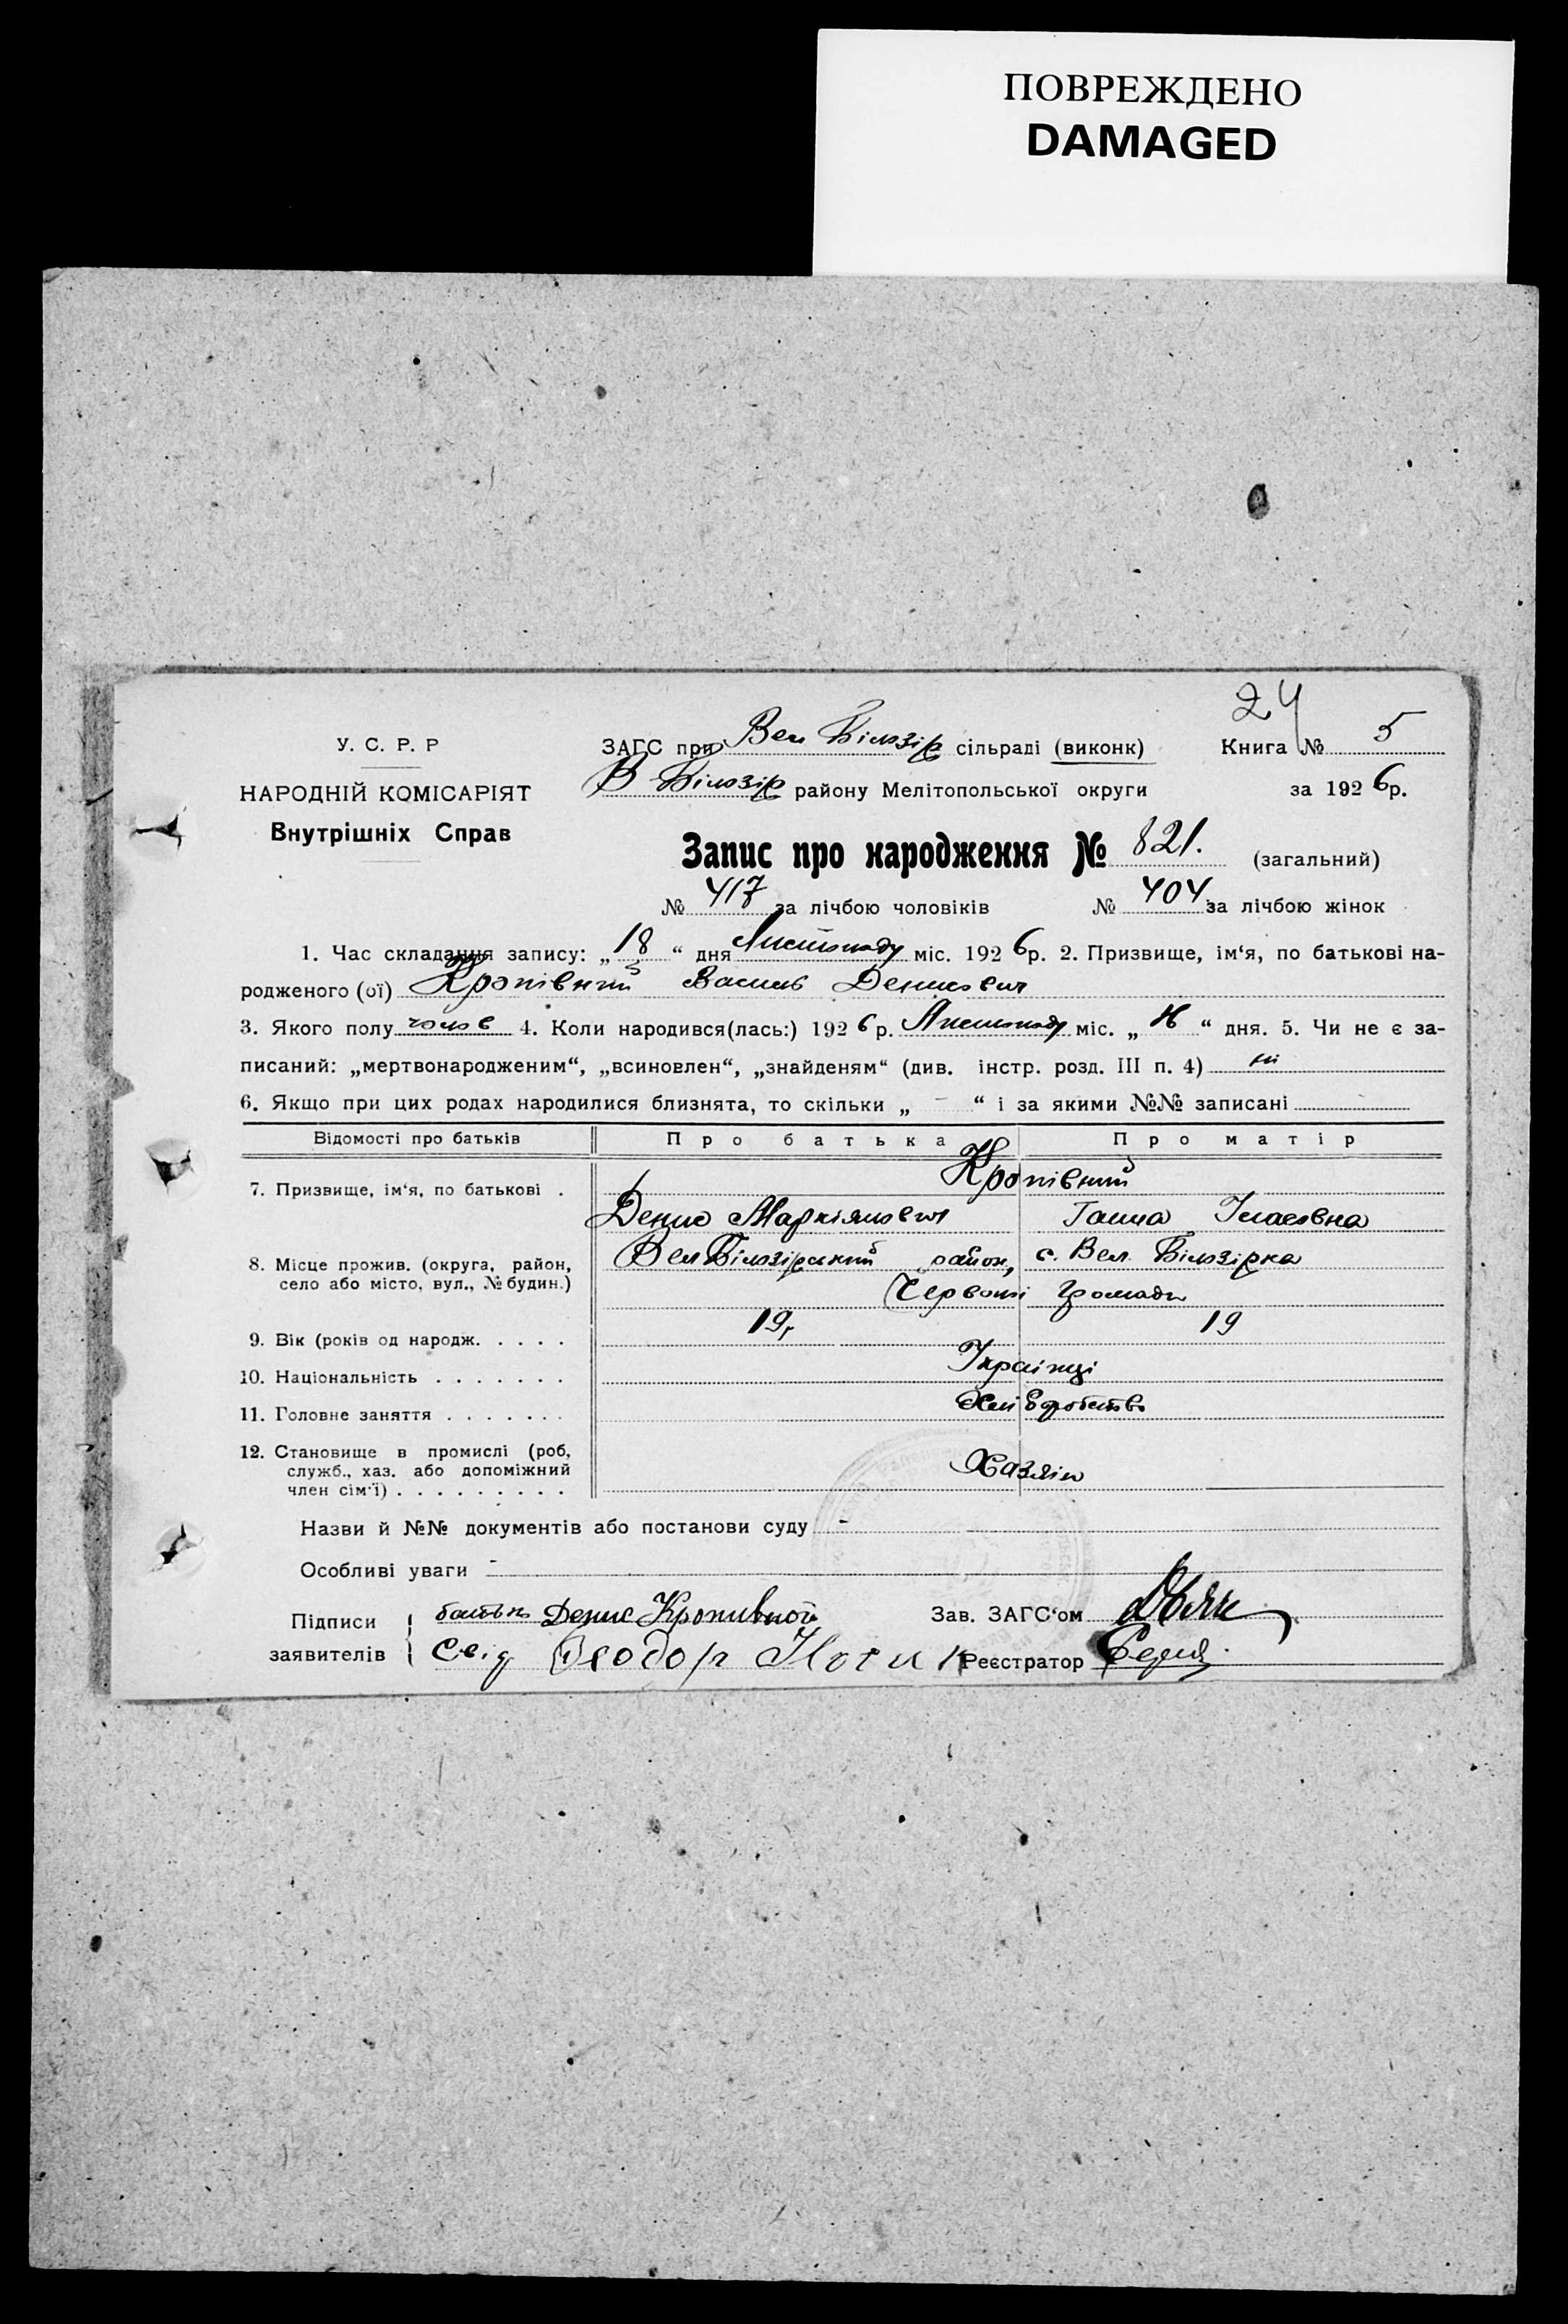 ПОВРЕЖДЕНО
DAMAGED
24
У. С. Р. Р
НАРОДНІЙ КОМІСАРІЯТ
Внутрішніх Справ
ЗАГС при Вел Білозір сільраді (виконк)
Книга № 5
В Білозір району Мелітопольської округи
за 1926р.
Запис про народження № 821. (загальний)
№ 417 за лічбою чоловіків № 404 за лічбою жінок
1. Час складання запису: „18“ дня Листопаду міс. 1926р. 2. Призвище, ім‘я, по батькові на-
родженого (ої) Кропівний Василь Денисович
3. Якого полу чолов 4. Коли народився(лась:) 1926р. Листопаду міс. „ “ дня. 5. Чи не є за-
писаний: „мертвонародженим“, „всиновлен“, „знайденям“ (див. інстр. розд. III п. 4) ні
6. Якщо при цих родах народилися близнята, то скільки „ - “ і за якими №№ записані
Відомості про батьків Про батька Про матір
7. Призвище, ім‘я, по батькові . Кропівний
Денис Маркіянович Ганна Ісаєвна
8. Місце прожив. (округа, район,
село або місто, вул., № будин.)
Вел Білозірський район, с. Вел Білозірка
Червоні громади
9. Вік (років од народж. . . . . 19, 19
10. Національність . . . . . . . Українці
11. Головне заняття . . . . . . . Хліборобство
12. Становище в промислі (роб,
служб., хаз. або допоміжний
член сім‘ї) . . . . . . . . . Хазяін
Назви й №№ документів або постанови суду -
Особливі уваги -
Підписи
заявителів
батько Денис Кропивной
Зав. ЗАГС‘ом
Свід Феодор
Реєстратор